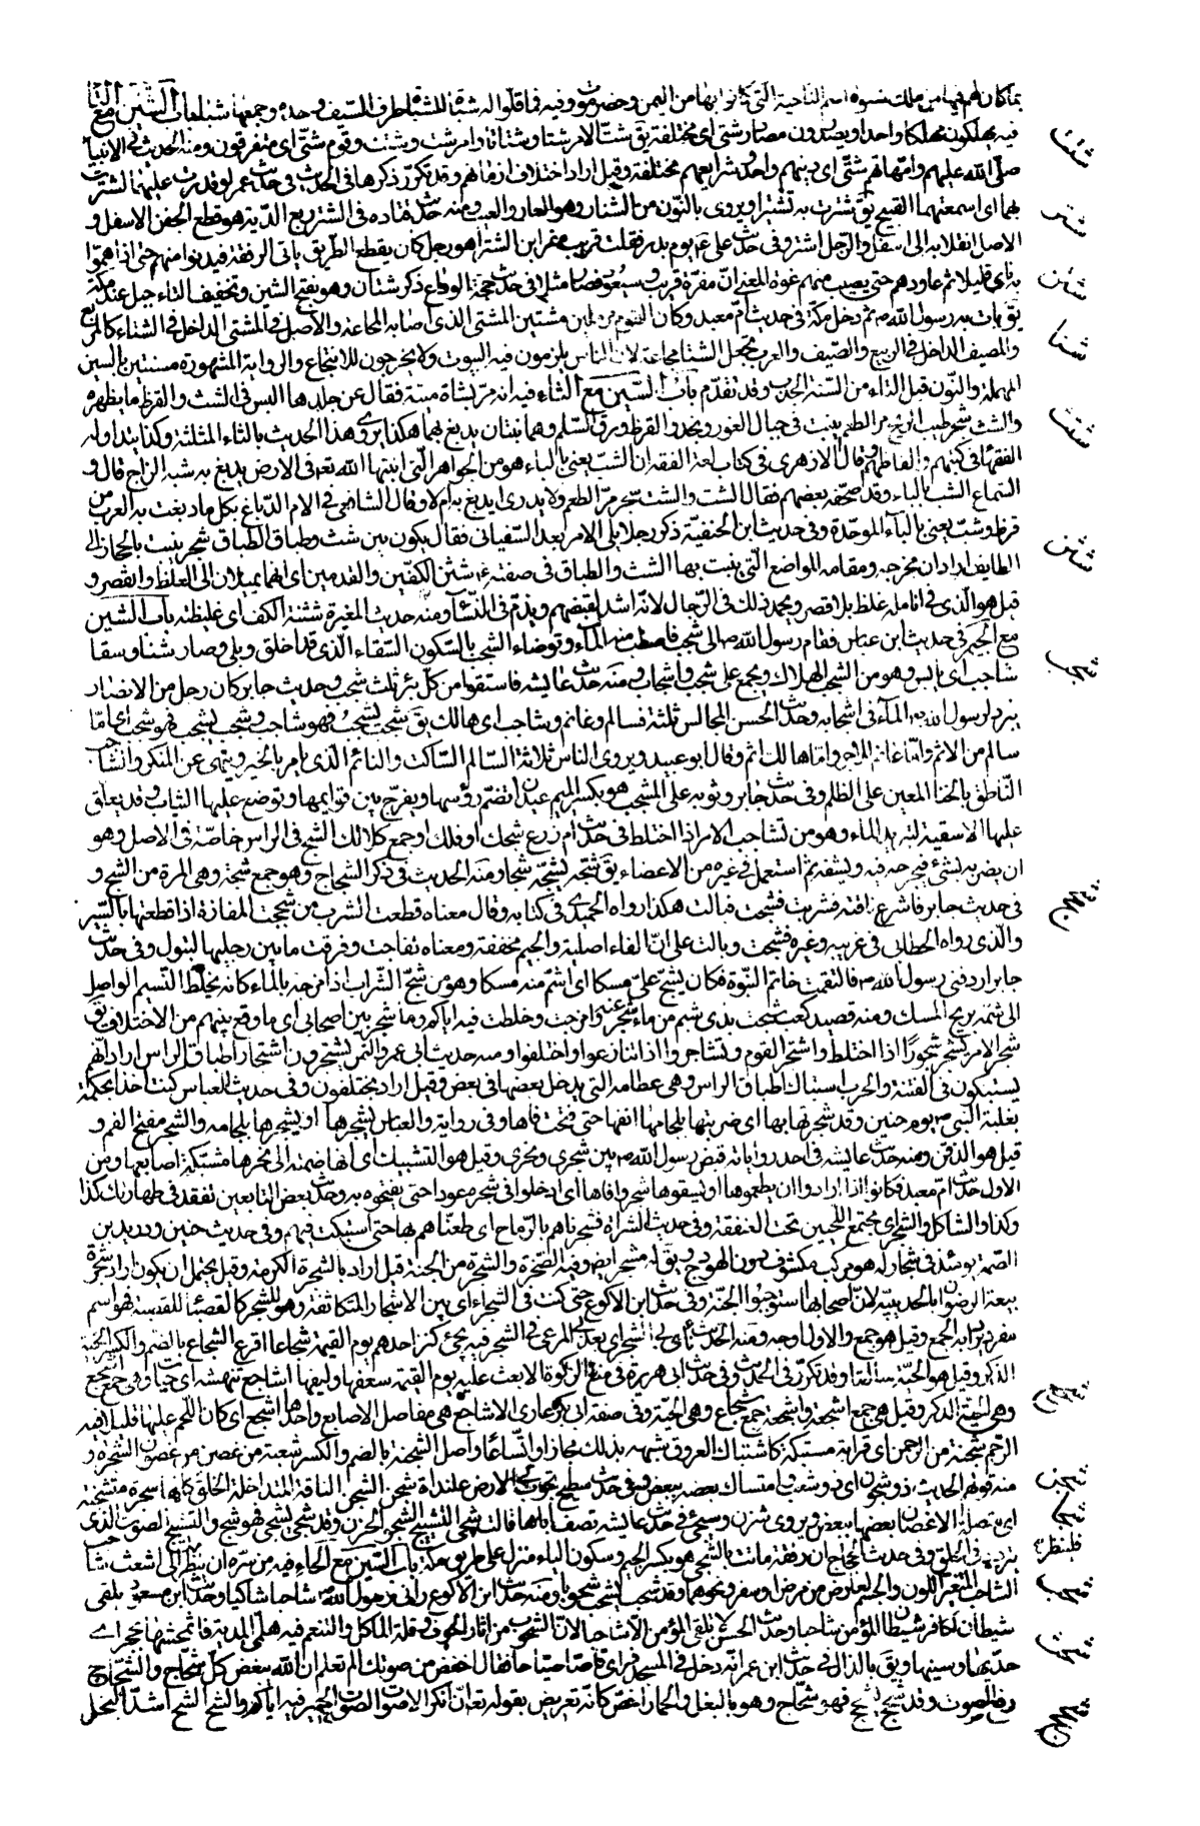 بما كان لهم فيها من ملك شبوة اسم الناحية التى كانوا بها من اليمن وحضرموت وفيه فما فلوا له شباة الشباة طرف السيف وحده وجمعها شبا باب الشين مع التا
شتت
فيه يهلكون مهلكا واحدا ويصدرون مصادر شتى اى مختلفة يق شت الامر شتا وشتاتا وامر شت وشتيت وقوم شتى اى متفرقون ومنه الحديث فى الانبيا
صلى الله عليهم وامهاتهم شتى اى دينهم واحد وشرايعهم مختلفة وقيل اراد اختلاف ازمانهم وقد تكرر ذكرها فى الحديث فى حديث عمر لو قدرت عليهما لشترت
شتر
بهما اى اسمعتهما القبيح يق شترت به تشتيرا ويروى بالنون من الشنار وهو العار والعيب ومنه حديث قتاده فى الشتر ربع الدية هو قطع الجفن الاسفل و
الاصل انقلابه الى اسفل والرجل اشتر وفى حديث على ع يوم بدر فقلت قريب مفر ابن الشترا هو رجل كان يقطع الطريق ياتى الرفقة فيدنو منهم حتى اذا هموا
شتن
به ناى قليلا ثم عاودهم حتى يصيب منهم غرة المعنى ان مفره قريب وسيعود فصار مثلا فى حديث حجة الوداع ذكر شتان وهو بفتح الشين وتخفيف التاء جبل عند مكة
شتا
يق بات به رسول الله ص ثم دخل مكة فى حديث ام معبد وكان القوم مرملين مشتين المشتى الذى اصابه المجاعة والاصل فى المشتى الداخل فى الشتاء كالمربع
والمصيف الداخل فى الربيع والصيف والعرب تجعل الشتا مجاعة لان الناس يلزمون فيه البيوت ولا يخرجون للانتجاع والرواية المشهورة مسنتين بالسين
المهملة والنون قبل التاء من السنة الجدب وقد تقدم باب الشين مع الثاء فيه انه مر بشاة ميتة فقال عن جلدها اليس فى الشث والقرظ ما يطهره
شثث
والشث شجر طيب الريح مر الطعم ينبت فى جبال الغور ونجد والقرظ ورق السلم وهما نبتان يدبغ بهما هكذا يروى هذا الحديث بالثاء المثلثة وكذا يتداوله
الفقهاء فى كتبهم والفاظهم وقال الازهرى فى كتاب لغة الفقه ان الشب يعنى بالباء هو من الجواهر التى انبتها الله تعم فى الارض يدبغ به شبه الزاج قال و
السماع الشب بالباء وقد صحفه بعضهم فقال الشث والشث شجر مر الطعم ولا يدرى ايدبغ به ام لا وقال الشافعى فى الام الدباغ بكل ما دبغت به العرب من
قرظ وشب يعنى بالباء الموحدة وفى حديث ابن الحنفية ذكر رجلا يلى الامر بعد السفيانى فقال يكون بين شث وطباق الطباق شجر ينبت بالحجاز الى
شثن
الطايف اراد ان مخرجه ومقامه المواضع التى ينبت بها الشث والطباق فى صفته ع شثن الكفين والقدمين اى انهما يميلان الى الغلظ والقصر و
قيل هو الذى فى انامله غلظ بلا قصر ويحمد ذلك فى الرجال لانه اشد لقبضهم ويذم فى النساء ومنه حديث المغيرة شثنة الكف اى غليظته باب الشين
شجب
مع الجيم فى حديث ابن عباس فقام رسول الله ص الى شجب فاصطب منه الماء وتوضاء الشجب بالسكون السقاء الذى قد اخلق وبلى وصار شنا وسقا
شاجب اى يابس وهو من الشجب الهلاك ويجمع على شجب واشجاب ومنه حديث عايشه فاستقوا من كل بئر ثلث شجب وحديث جابر كان رجل من الانصار
يبرد لرسول الله ص الماء فى اشجابه وحديث الحسن المجالس ثلثة فسالم وغانم وشاجب اى هالك يق شجب يشجب فهو شاجب وشجب يشجب فهو شجب اى اما
سالم من الاثم واما غانم للاجر واما هالك اثم وقال ابو عبيد ويروى الناس ثلاثة السالم الساكت والغانم الذى يامر بالخير وينهى عن المنكر والشاجب
الناطق بالخنا المعين على الظلم وفى حديث جابر وثوبه على المشجب هو بكسر الميم عيدان تضم رؤسها ويفرج بين قوايمها وتوضع عليها الثياب وقد يعلق
عليها الاسقية لتبريد الماء وهو من تشاجب الامر اذا اختلط فى حديث ام زرع شجك او فلك او جمع كلا لك الشج فى الراس خاصة فى الاصل وهو
ان يضربه بشئ فيجرحه فيه ويشقه ثم استعمل فى غيره من الاعضاء يق شجه يشجه شجا ومنه الحديث فى ذكر الشجاج وهو جمع شجة وهى المرة من الشج و
شجج
فى حديث جابر فاشرع ناقته فشربت فشجت فبالت هكذا رواه الحميدى فى كتابه وقال معناه قطعت الشرب من شججت المفازة اذا قطعتها بالسير
والذى رواه الخطابى فى غريبه وغيره فشجت وبالت على ان الفاء اصلية والجيم مخففة ومعناه تفاجت وفرقت ما بين رجليها لتبول وفى حديث
جابر اردفنى رسول الله ص فالتقمت خاتم النبوة فكان يشج على مسكا اى اشم منه مسكا وهو من شج الشراب اذا مزجه بالماء كانه يخلط النسيم الواصل
الى مشمه بريح المسك ومنه قصيد كعب شجت بذى شبم من ماء محنية اى مزجت وخلطت فيه اياكم وما شجر بين اصحابى اى ما وقع بينهم من الاختلاف يق
شجر الامر يشجر شجورا اذا اختلط واشتجر القوم وتشاجروا اذا تنازعوا واختلفوا ومنه حديث ابى عمرو النخعى يشتجرون اشتجار اطباق الراس اراد انهم
يشتبكون فى الفتنة والحرب اشتباك اطباق الراس وهى عظامه التى يدخل بعضها فى بعض وقيل اراد يختلفون وفى حديث العباس كنت اخذا بحكمة
بغلة النبى ص يوم حنين وقد شجرتها بها اى ضربتها بلجامها اكفها حتى فتحت فاها وفى رواية والعباس يشجرها او يشتجرها بلجامه والشجر مفتح الفم و
قيل هو الذقن ومنه حديث عايشه فى احد رواياته قبض رسول الله ص بين شجرى ونحرى وقيل هو التشبيك اى انها ضمته الى نحرها مشبكة اصابعها ومن
الاول حديث ام معبد فكانوا اذا ارادوا ان يطعموها او يسقوها شجروا فاها اى ادخلوا فى شجره عودا حتى يفتحوه به وحديث بعض التابعين تفقد فى طهارتك كذا
وكذا والشاكل والشجر اى مجتمع اللحيين تحت العنفقة وفى حديث الشراة فشجرناهم بالرماح اى طعناهم بها حتى اشتبكت فيهم وفى حديث حنين ودريد بن
الصمة يومئذ فى شجار له هو مركب مكشوف دون الهودج ويق له مشجر ايض وفيه الصخرة والشجرة من الجنة قيل اراد بالشجرة الكرمة وقيل يحتمل ان يكون اراد شجرة
بيعة الرضوان بالحديبية لان اصحابها استوجبوا الجنة وفى حديث ابن الاكوع حتى كنت فى الشجراء اى بين الاشجار المتكاثفة وهو للشجرة كالقصباء للقصبة فهو اسم
مفرد يراد به الجمع وقيل هو جمع والاول اوجه ومنه الحديث ناى بى الشجر اى بعد بى المرعى فى الشجر فيه يجئ كنز احدهم يوم القيمة شجاعا اقرع الشجاع بالضم والكسر الحية
الذكر وقيل هو الحية مطلقا وقد تكرر فى الحديث وفى حديث ابى هريرة فى منع الزكوة الا بعث عليه يوم القيمة سعفها وليفها اشاجع تنهشه اى حيات وهى جمع اشجع
شجع
وهى الحية الذكر وقيل هى جمع اشجعة واشجعة جمع شجاع وهى الحية وفى صفة ابى بكر عارى الاشاجع هى مفاصل الاصابع واحدها اشجع اى كان اللحم عليها قليلا فيه
الرحم شجنة من الرحمن اى قرابة مشتبكة كاشتباك العروق شبهه بذلك مجازا واتساعا واصل الشجنة بالضم والكسر شعبة من غصن من غصون الشجرة و
شجن
منه قولهم الحديث ذو شجون اى ذو شعب وامتساك بعضه ببعض وفى حديث سطيح تجوب بى الارض علنداة شجن الشجن الناقة المتداخلة الخلق كانها شجرة متشجنة
شجا
اى متصلة الاغصان بعضها ببعض ويروى شزن وسيجئ فى حديث عايشه تصف اباها قالت شجى النشيج الشجو الحزن وقد شجى يشجى فهو شج والنشيج الصوت الذى
فلينظر
يتردد فى الحلق وفى حديث الحجاج ان رفقة ماتت بالشجى هو بكسر الجيم وسكون الياء منزل على طريق مكة باب الشين مع الحاء فيه من سره ان ينظر الى اشعث شاحب
شحب
الشاحب المتغير اللون والجسم لعارض من مرض او سفر ونحوهما وقد شحب يشحب شحوبا ومنه حديث ابن الاكوع رانى رسول الله ص شاحبا شاكيا وحديث ابن مسعود يلقى
شيطان الكافر شيطان المؤمن شاحبا وحديث الحسن لا تلقى المؤمن الا شاحبا لان الشحوب من اثار الخوف وقلة الماكل والتنعم فيه هلمى المدية فاشحثيها بحجر اى
شحث
حديها وسنيها ويق بالذال فى حديث ابن عمر انه دخل فى المسجد فراى قاصا صياحا فقال اخفض من صوتك الم تعلم ان الله يبغض كل شحاج والشحاج
شحج
رفع الصوت وقد شحج يشحج فهو شحاج وهو بالبغل والحمار اخص كانه تعريض بقوله تع ان انكر الاصوات لصوت الحمير فيه اياكم والشح الشح اشد البخل